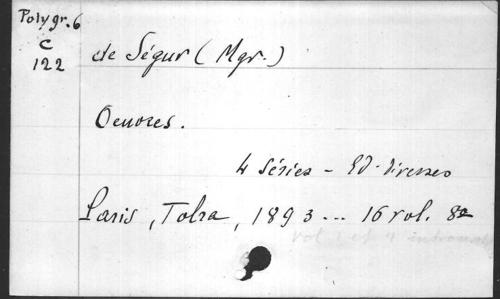 Polygr. 6
C
122
de Ségur (Mgr.)
Oeuvres.
4 Séries - Ed. diverses
Paris, Tolra, 1893... 16 vol. 8º
vol 1 et 4